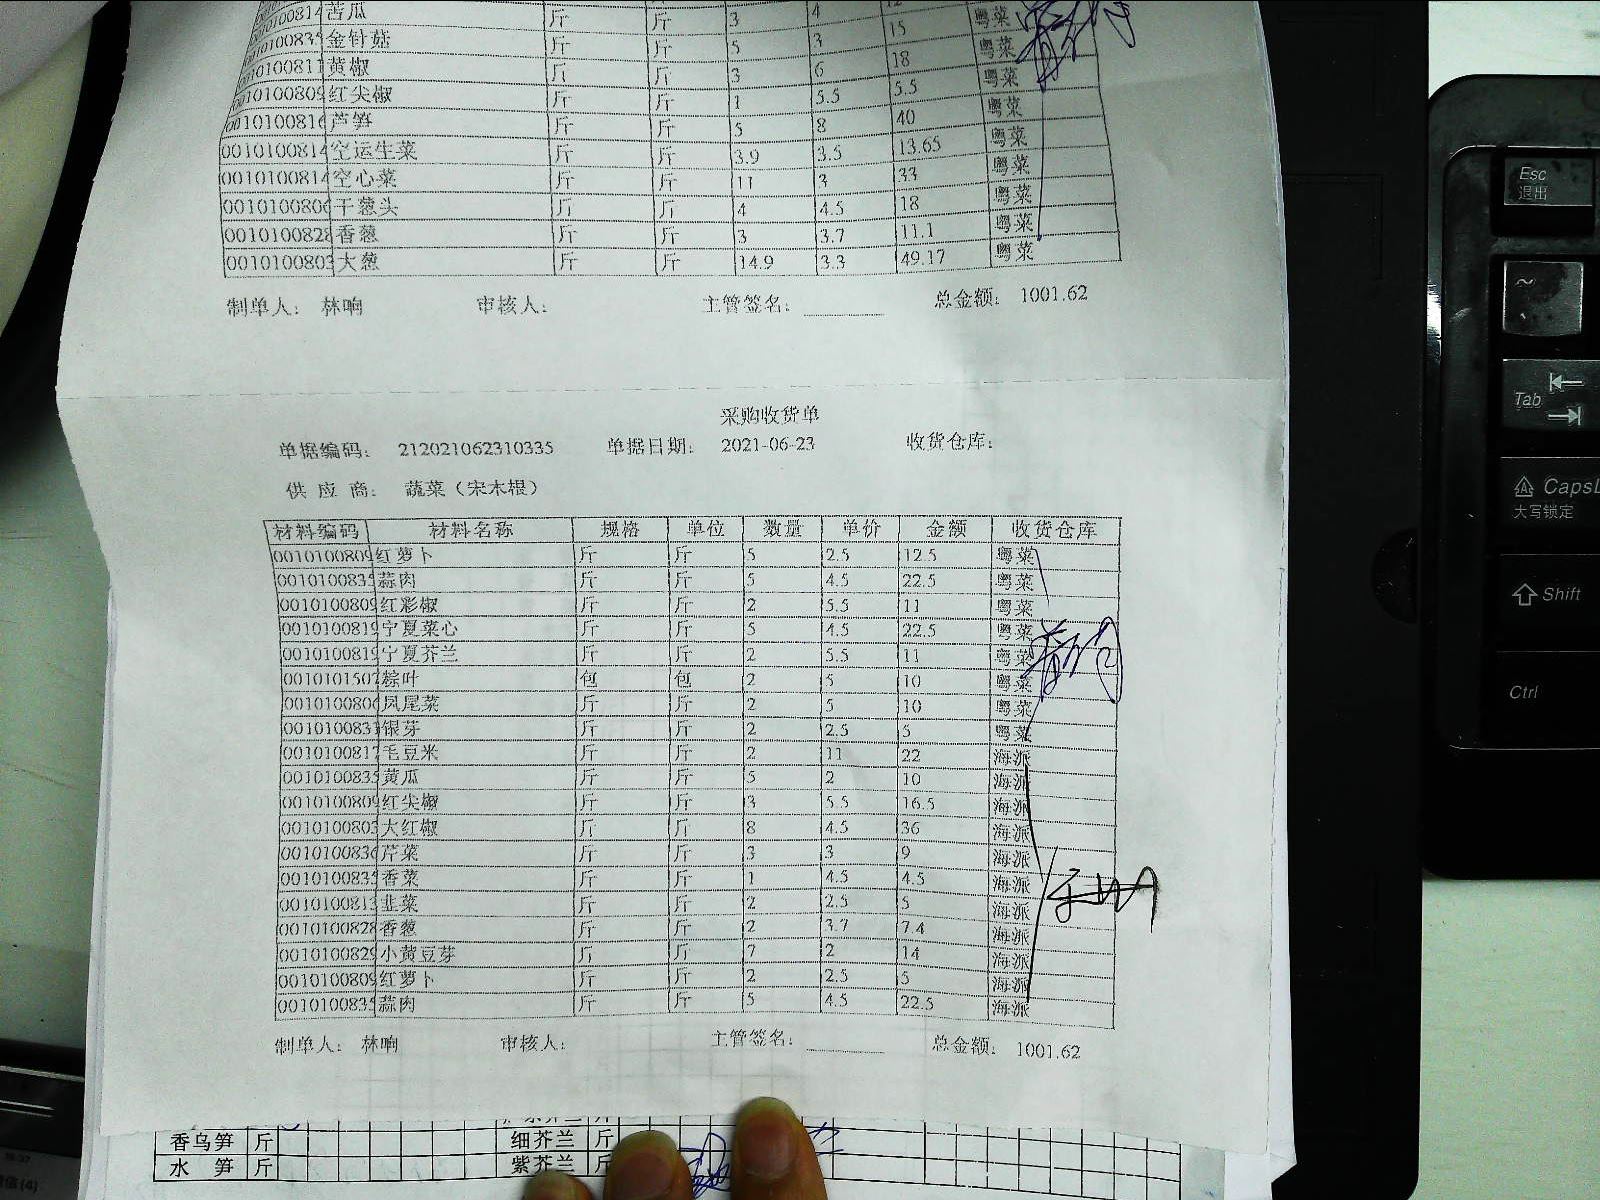 00100814 苦瓜 斤 斤 3 4 12 粤菜
0010100835 金针菇 斤 斤 5 3 15 粤菜
0010100811 黄椒 斤 斤 3 6 18 粤菜
0010100809 红尖椒 斤 斤 1 5.5 5.5 粤菜
0010100816 芦笋 斤 斤 5 8 40 粤菜
0010100814 空运生菜 斤 斤 3.9 3.5 13.65 粤菜
0010100814 空心菜 斤 斤 11 3 33 粤菜
0010100806 干葱头 斤 斤 4 4.5 18 粤菜
0010100828 香葱 斤 斤 3 3.7 11.1 粤菜
0010100803 大葱 斤 斤 14.9 3.3 49.17 粤菜
制单人： 林响 审核人： 主管签名： 总金额： 1001.62
采购收货单
单据编码： 212021062310335 单据日期： 2021-06-23 收货仓库：
供 应 商： 蔬菜（宋木根）
材料编码 材料名称 规格 单位 数量 单价 金额 收货仓库
0010100809 红萝卜 斤 斤 5 2.5 12.5 粤菜
0010100835 蒜肉 斤 斤 5 4.5 22.5 粤菜
0010100809 红彩椒 斤 斤 2 5.5 11 粤菜
0010100819 宁夏菜心 斤 斤 5 4.5 22.5 粤菜
0010100819 宁夏芥兰 斤 斤 2 5.5 11 粤菜
0010101507 粽叶 包 包 2 5 10 粤菜
0010100806 凤尾菜 斤 斤 2 5 10 粤菜
0010100831 银芽 斤 斤 2 2.5 5 粤菜
0010100817 毛豆米 斤 斤 2 11 22 海派
0010100835 黄瓜 斤 斤 5 2 10 海派
0010100809 红尖椒 斤 斤 3 5.5 16.5 海派
0010100803 大红椒 斤 斤 8 4.5 36 海派
0010100836 芹菜 斤 斤 3 3 9 海派
0010100835 香菜 斤 斤 1 4.5 4.5 海派
0010100813 韭菜 斤 斤 2 2.5 5 海派
0010100828 香葱 斤 斤 2 3.7 7.4 海派
0010100829 小黄豆芽 斤 斤 7 2 14 海派
0010100809 红萝卜 斤 斤 2 2.5 5 海派
0010100835 蒜肉 斤 斤 5 4.5 22.5 海派
制单人： 林响 审核人： 主管签名： 总金额： 1001.62
香乌笋 斤 细芥兰 斤
水 笋 斤 紫芥兰 斤
Esc
退出
~
Tab
CapsL
大写锁定
Shift
Ctrl